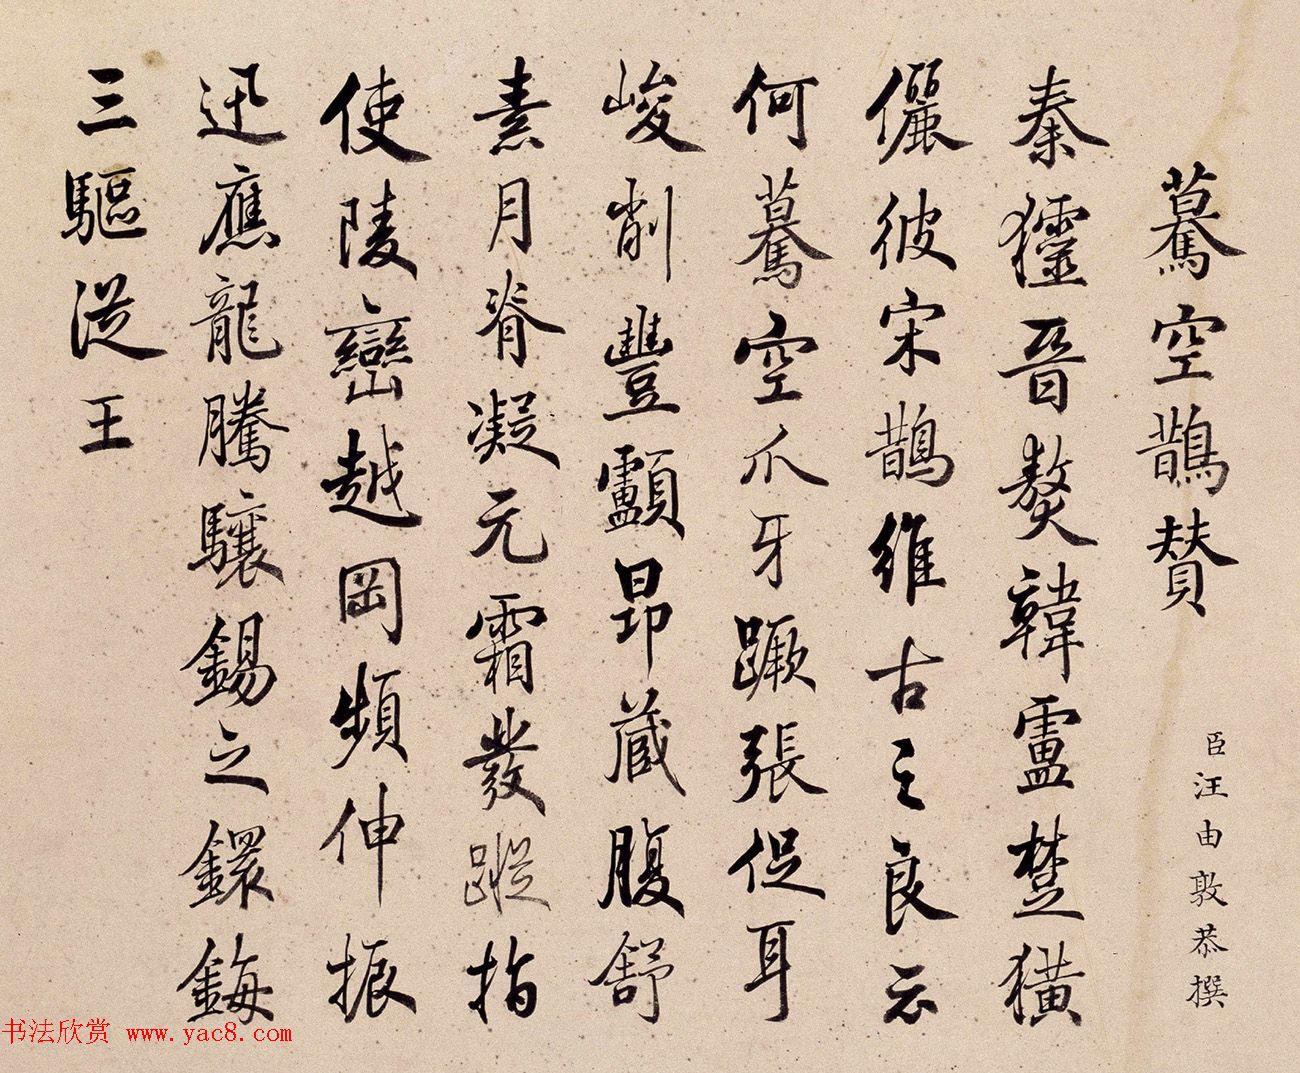 蓦空鵲贊
臣汪由敦恭撰
秦獹晉獒韓盧楚獚
儷彼宋鵲維古之良云
何驀空爪牙蹶張促耳
峻削豐顱昂藏腹舒
素月脊凝元霜發蹤指
使陵巒越岡頻伸振
迅應龍騰驤錫之鐶鋂
三驅從王
书法欣赏 www.yac8.com